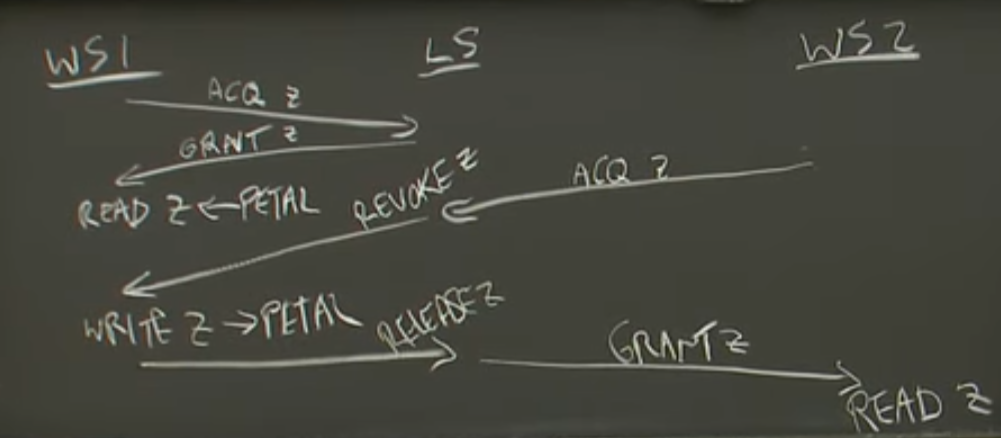 WS1 LS WS2
ACQ Z
GRANT Z
ACQ Z
READ Z ← PETAL
REVOKE Z
WRITE Z → PETAL
RELEASE Z
GRANT Z
READ Z